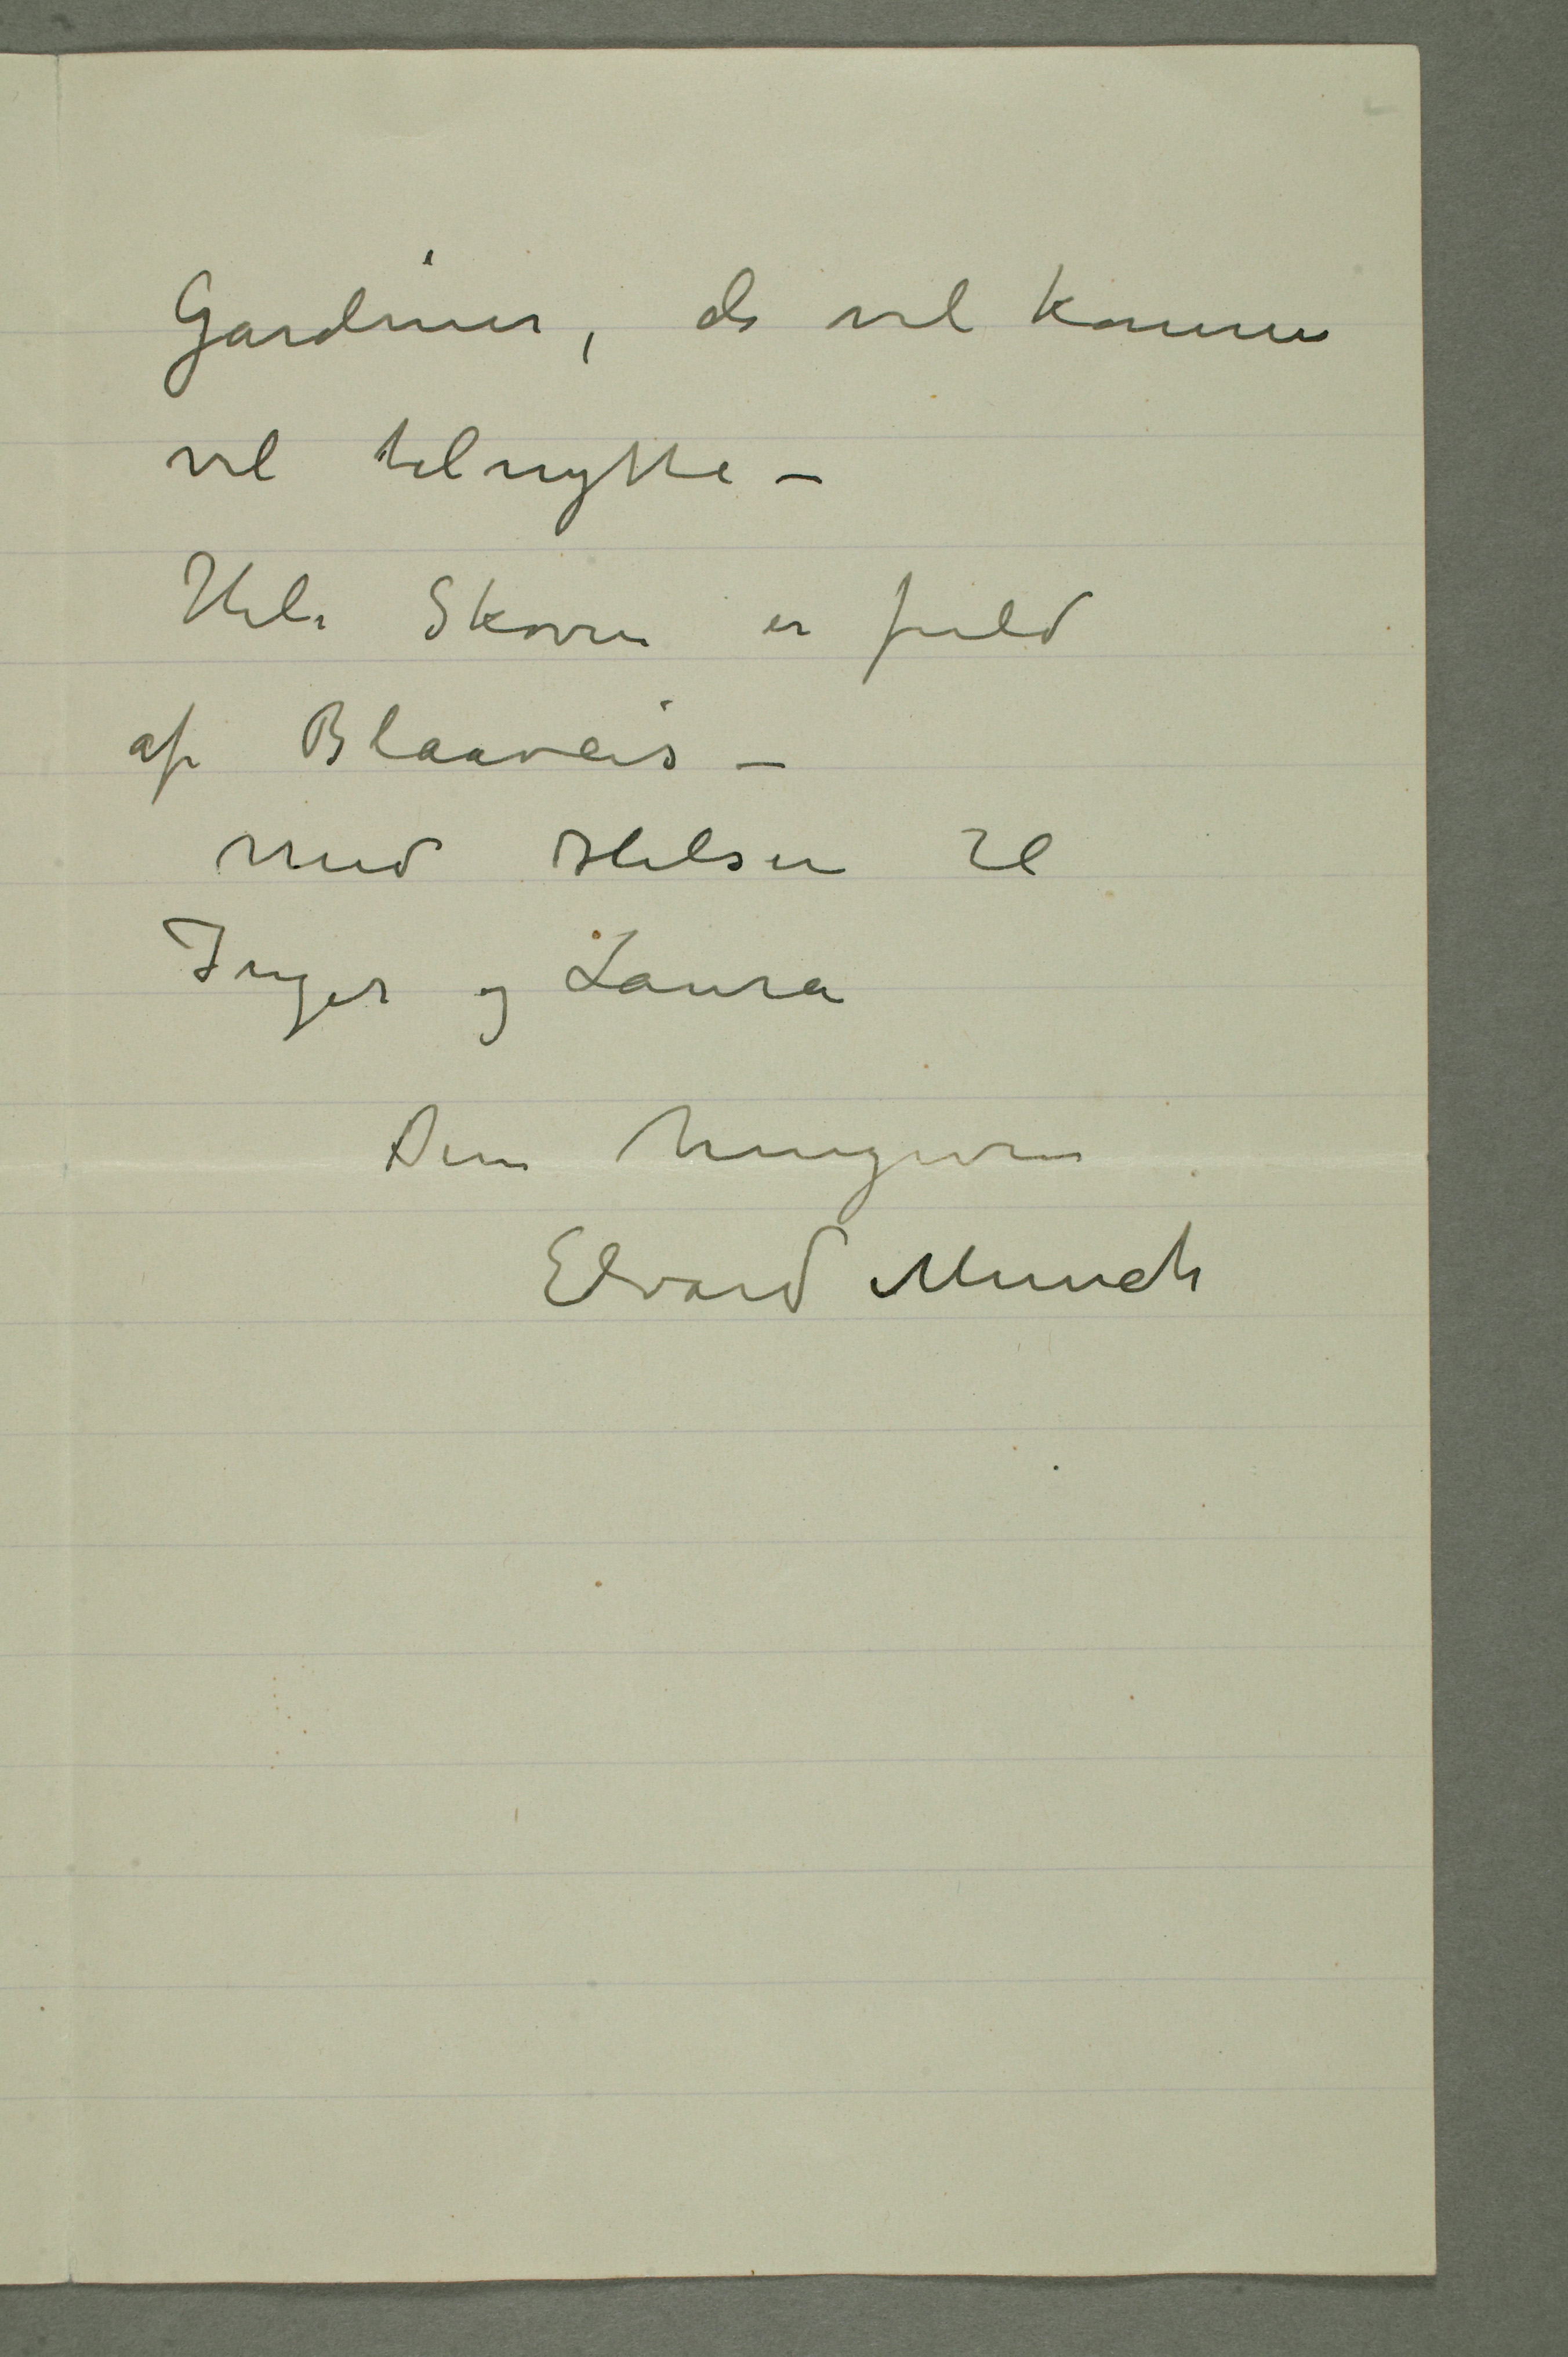 Gardiner, de vil komme
vel tilnytte –
Hele Skoven er fuld
af Blaaveis –
med Hilsen til
Inger og Laura
Din hengivne
Edvard Munch